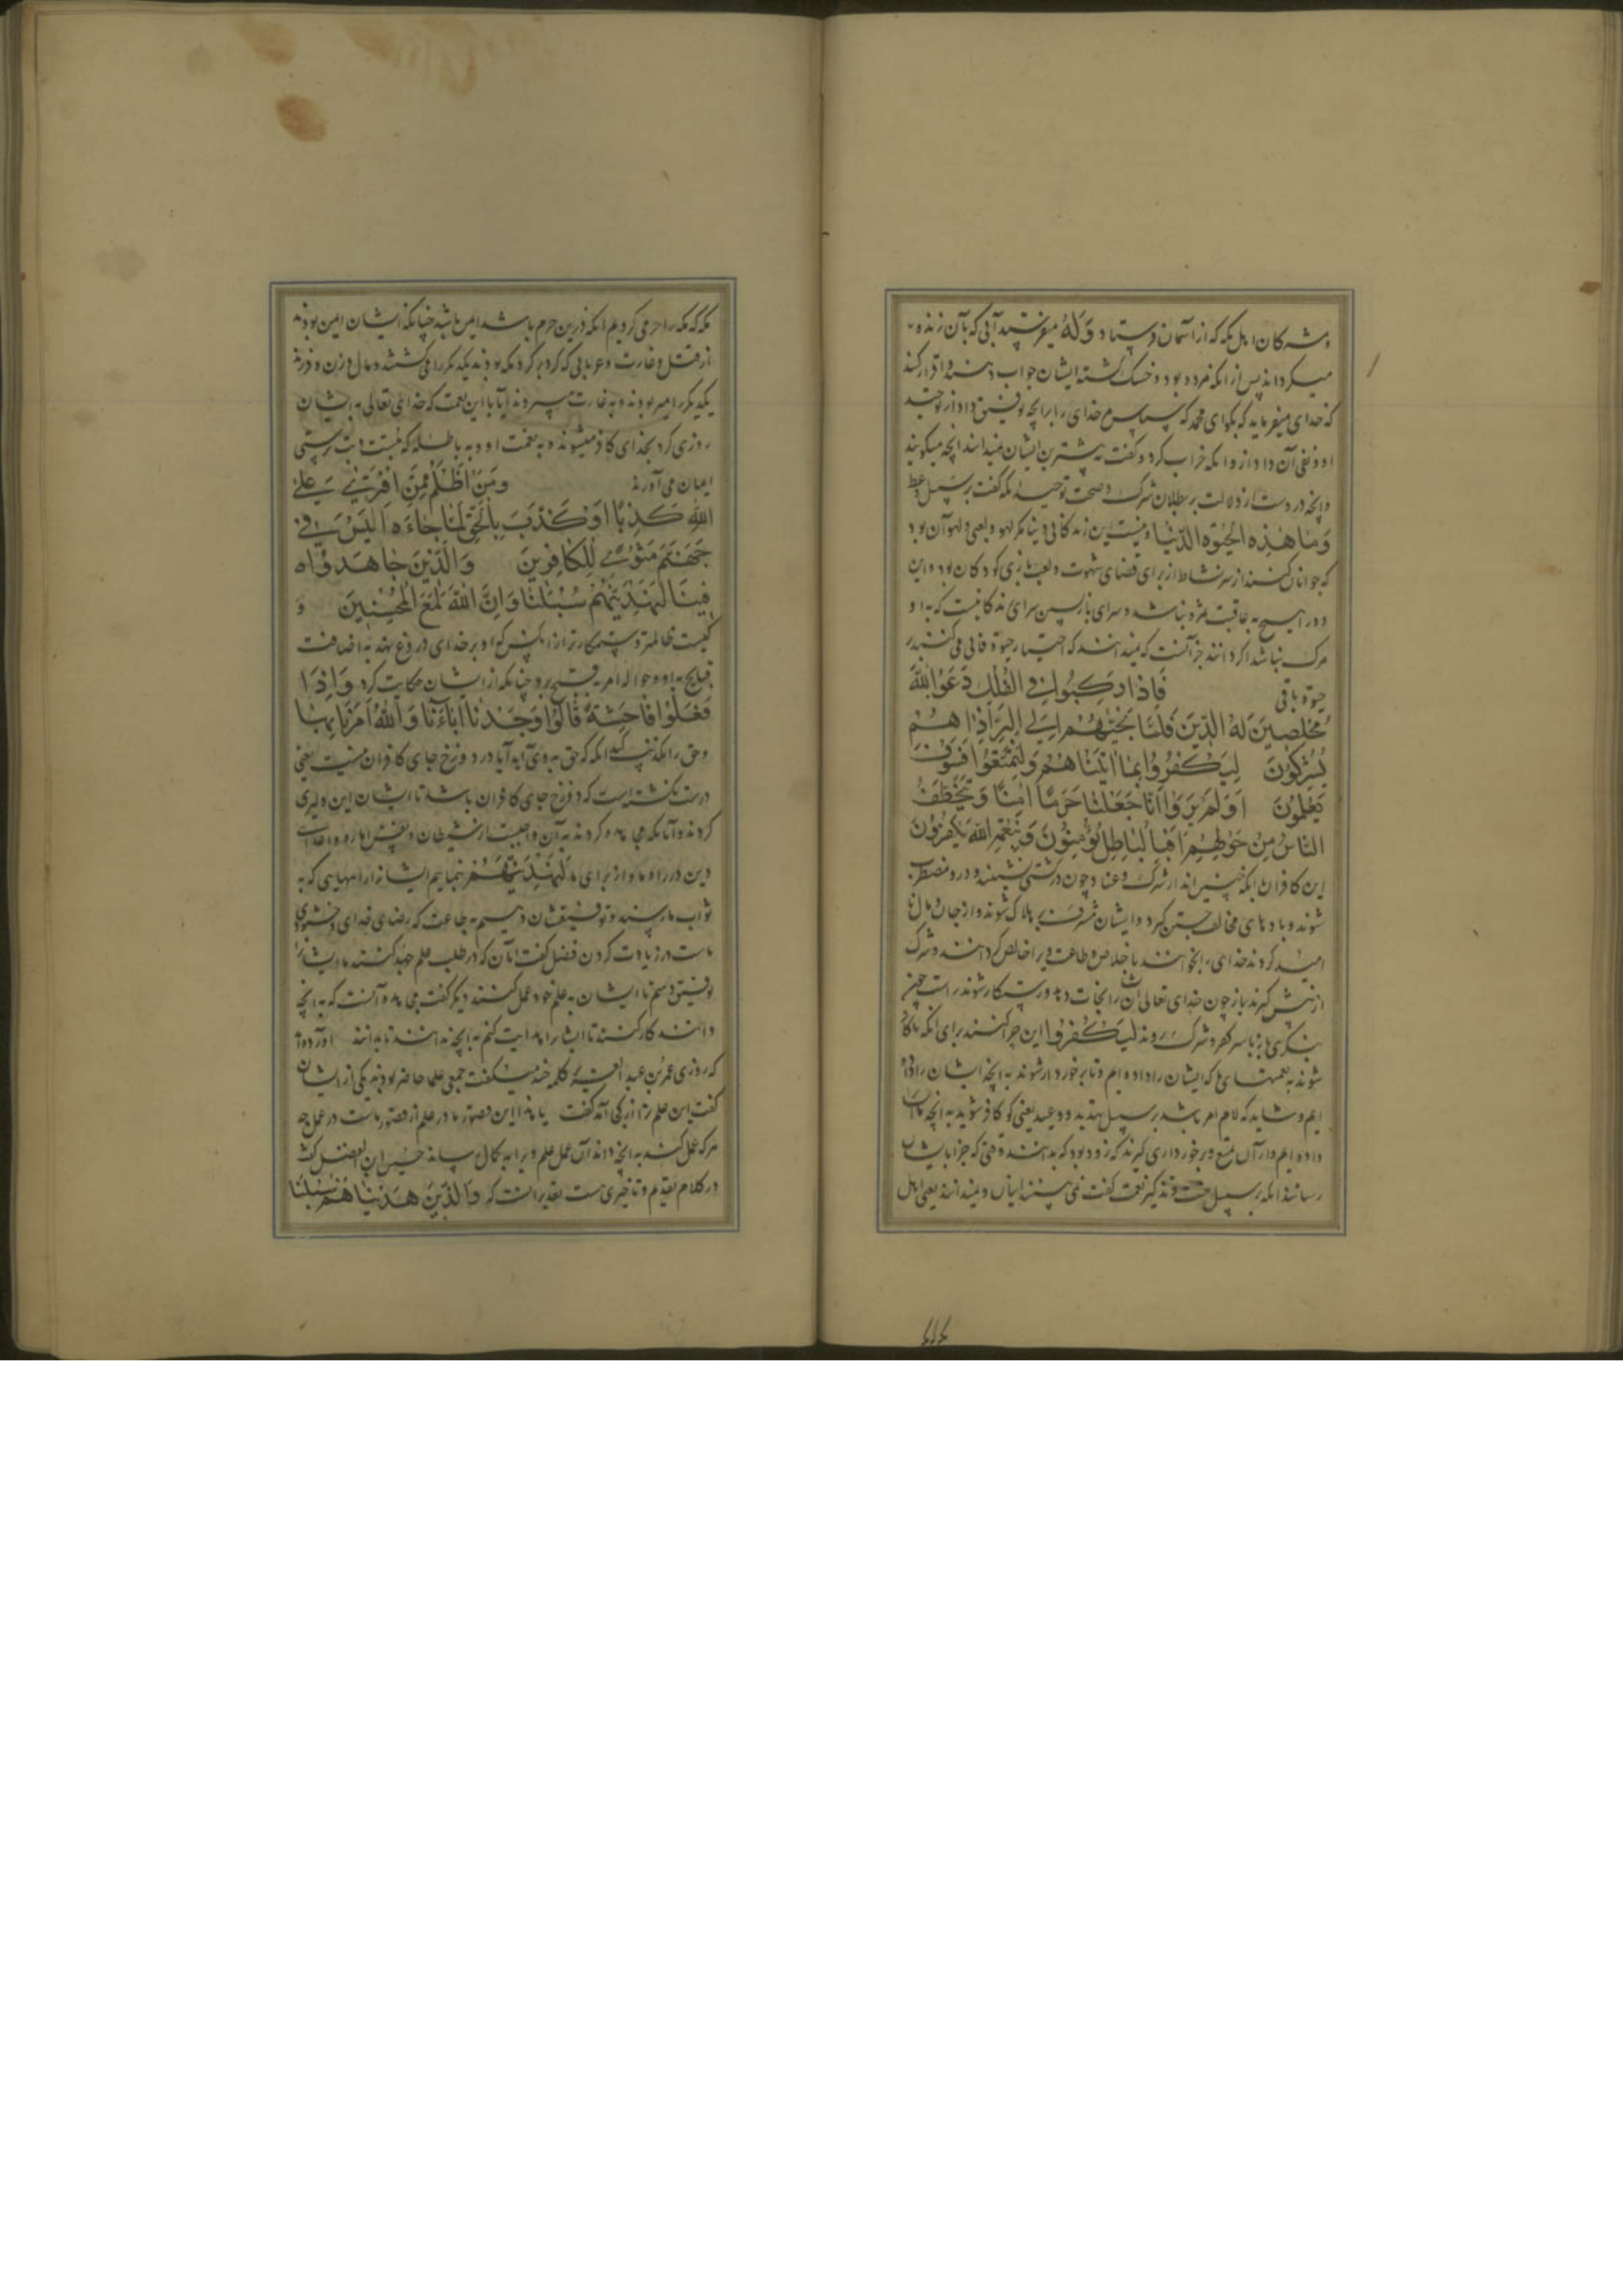 و مشرکان اهل مکه که از آسمان فرستاد وَلَهُ میفرستید آبی که بآن زنده
میگرداند پس از انکه مرده بود و خشک گشته ایشان جواب دهند و اقرار کنند
که خدای میفرماید که بگو ای محمد که سپاس مر خدای را برانچه توفیق داد از توحید
او و نفی آن داد از و انکه خراب کرد و گفت بیشترین ایشان نمیدانند انچه میگویند
و انچه در وست از دلالت بر بطلان شرک و صحت توحید انکه گفت بر سبیل وعظ
وَمَا هٰذِهِ الْحَیٰوةُ الدُّنْیَا و نیست این زندگانی دنیا مگر لهو و لعبی و لهو آن بود
که جوانان کنند از سر نشاط از برای قضای شهوت و لعب بازی کودکان بود و این
هر دو را هیچ عاقبت مزد نباشد و سرای بازپسین سرای زندگانیست که با او
مرگ نباشد اگر دانند جز آنست که نمیدانند که اختیار حیوة فانی می کنند بر
حیوة باقی فَاِذَا رَکِبُوا فِی الْفُلْکِ دَعَوُا اللهَ
مُخْلِصِینَ لَهُ الدِّینَ فَلَمَّا نَجّٰیهُمْ اِلَی الْبَرِّ اِذَا هُمْ
یُشْرِکُونَ لِیَکْفُرُوا بِمَا اٰتَیْنَاهُمْ وَلِیَتَمَتَّعُوا فَسَوْفَ
یَعْلَمُونَ اَوَلَمْ یَرَوْا اَنَّا جَعَلْنَا حَرَمًا اٰمِنًا وَیُتَخَطَّفُ
النَّاسُ مِنْ حَوْلِهِمْ اَفَبِالْبَاطِلِ یُؤْمِنُونَ وَبِنِعْمَةِ اللهِ یَکْفُرُونَ
این کافران با انکه چنین اند از شرک و عناد چون در کشتی نشینند و درو مضطرب
شوند و بادهای مخالف جستن گیرد و ایشان مشرف بر هلاک شوند و از جان و مال نا
امید گردند خدای را بخوانند باخلاص و طاعت ویرا خالص گردانند و شرک
از پیش گیرند باز چون خدای تعالی ایشان را نجات دهد و رستگار شوند راست چون
بنگری باز با سر کفر و شرک روند لِیَکْفُرُوا این چرا کنند برای انکه تا کافر
شوند به نعمتهای که ایشان را داده ایم و تا برخوردار شوند به انچه ایشان را داده
ایم و شاید که لام امر باشد بر سبیل تهدید و وعید یعنی گو کافر شوید به انچه ما
داده ایم و از آن تمتع و برخورداری گیرند که زود بود که بدانند وقتی که جزا بایشان
رسانند انکه بر سبیل حث و تذکیر نعمت گفت نمی بینند اینان و نمیدانند یعنی اهل
مکه که مکه را حرمی کردیم انکه در این حرم باشد امن باشد چنانکه ایشان امین بودند
از قتل و غارت و عربانی که گرد بر گرد مکه بودند یکدیگر را می کشتند و مال و زن و فرزند
یکدیگر را اسیر بودند و به غارت میبردند ایا با این نعمت که خدای تعالی به ایشان
روزی کرد بخدای کافر میشوند و به نعمت او و به باطله که بتست و بت پرستی
ایمان می آورند وَمَنْ اَظْلَمُ مِمَّنِ افْتَرٰی عَلَی
اللهِ کَذِبًا اَوْ کَذَّبَ بِالْحَقِّ لَمَّا جَاءَهُ اَلَیْسَ فِی
جَهَنَّمَ مَثْوًی لِلْکَافِرِینَ وَالَّذِینَ جَاهَدُوا
فِینَا لَنَهْدِیَنَّهُمْ سُبُلَنَا وَاِنَّ اللهَ لَمَعَ الْمُحْسِنِینَ و
کیست ظالمتر و ستمکارتر از انکس که او بر خدای دروغ نهد به اضافت
قبایح به او و حواله امر قبیح برو چنانکه از ایشان حکایت کرد وَاِذَا
فَعَلُوا فَاحِشَةً قَالُوا وَجَدْنَا اٰبَاءَنَا وَاللهُ اَمَرَنَا بِهَا
و حق را تکذیب کند انکه که حق به وی آید آیا در دوزخ جای کافران نیست یعنی
درست گشته است که دوزخ جای کافران باشد تا ایشان این دلیری
کردند و آنانکه مجاهده کردند به آن واجبست از شیطان و نفس اماره و اعدای
دین در راه ما و از برای ما لَنَهْدِیَنَّهُمْ بنماییم ایشانرا راههایی که به
ثواب ما رسند و توفیقشان دهیم به طاعت که رضای خدای و خشنودی
ماست در زیادت کردن فضیل گفت آنان که در طلب علم جهد کنند ما ایشانرا
توفیق دهیم تا ایشان به علم خود عمل کنند دیگر گفت مجاهده آنست که به انچه
دانند کار کنند تا ایشانرا هدایت کنم به انچه ندانند تا بدانند آورده اند
که روزی عمر بن عبد العزیز کلمه چند میگفت جمعی علما حاضر بودند یکی از ایشان
گفت این علم ترا از کجا آمد گفت یا هذا این قصور ما در علم از قصور ماست در عمل چه
هر که عمل کند به انچه داند آن عمل علم ویرا به کمال رساند حسین ابن الفضل گفت
در کلام تقدیم و تاخیری هست تقدیر آنست که وَالَّذِینَ هَدَیْنَاهُمْ سُبُلَنَا